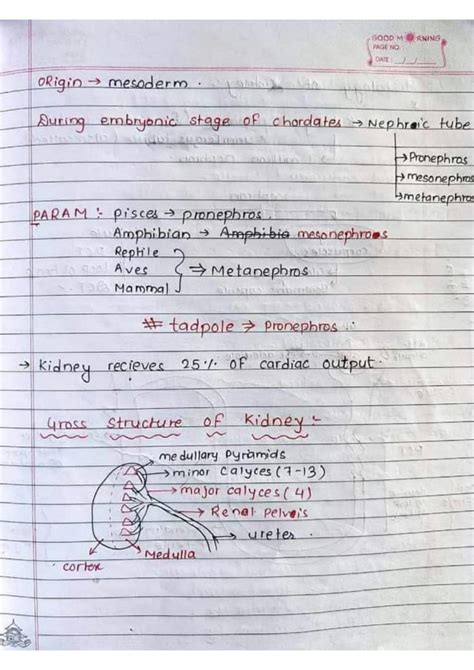 GOOD MORNING
PAGE NO.
DATE: / /
ORigin → mesoderm.
During embryonic stage of chordates → Nephroic tube
→ Pronephros
→ mesonephros
→ metanephros
PARAM :- pisces → pronephros.
Amphibian → Amphibia mesonephros
Reptile
Aves } ⇒ Metanephros
Mammal
# tadpole ⇒ Pronephros :.
→ Kidney recieves 25% of cardiac output.
Gross Structure of Kidney :-
→ medullary pyramids
→ minor calyces (7-13)
→ major calyces (4)
→ Renal pelvis
→ ureter
Medulla
cortex